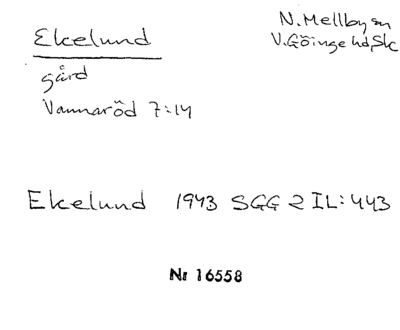 Ekelund
N. Mellby sn
V. Göinge hd, Sk
gård
Vannaröd 7:14
Ekelund 1943 SGG 2 IL:443
Nr 16558